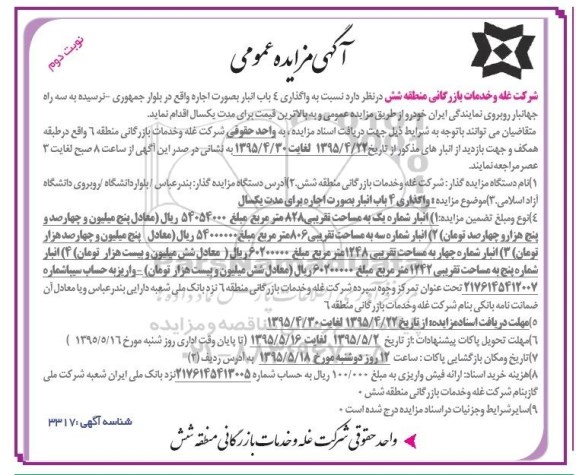 نوبت دوم
آگهی مزایده عمومی
شرکت غله و خدمات بازرگانی منطقه شش درنظر دارد نسبت به واگذاری ٤ باب انبار بصورت اجاره واقع در بلوار جمهوری -نرسیده به سه راه
جهانبار روبروی نمایندگی ایران خودرو از طریق مزایده عمومی و به بالاترین قیمت برای مدت یکسال اقدام نماید.
متقاضیان می توانند باتوجه به شرایط ذیل جهت دریافت اسناد مزایده ، به واحد حقوقی شرکت غله وخدمات بازرگانی منطقه ٦ واقع درطبقه
همکف و جهت بازدید از انبار های مذکور از تاریخ ۱۳۹۵/۴/۲۲ لغایت ۱۳۹۵/۴/۳۰ به نشانی در صدر این آگهی از ساعت ٨ صبح لغایت ۳
عصر مراجعه نمایند.
۱)نام دستگاه مزایده گذار : شرکت غله وخدمات بازرگانی منطقه شش.۲)آدرس دستگاه مزایده گذار: بندرعباس / بلواردانشگاه / روبروی دانشگاه
آزاد اسلامی.۳)موضوع مزایده : واگذاری ۴ باب انبار بصورت اجاره برای مدت یکسال
٤)نوع ومبلغ تضمین مزایده: ۱) انبار شماره یک به مساحت تقریبی۸۲۸ متر مربع مبلغ ۵۴۰۵۴۰۰۰ ریال (معادل پنج میلیون و چهارصد و
پنج هزار و چهارصد تومان) ۲) انبار شماره سه به مساحت تقریبی۸۰۶متر مربع مبلغ ۵۴۰۰۰۰۰۰ ریال (معادل پنج میلیون و چهارصد هزار
تومان) ۳) انبار شماره چهار به مساحت تقریبی ۱۲۴۸متر مربع مبلغ ۶۰۲۰۰۰۰۰ ریال ( معادل شش میلیون و بیست هزار تومان) ۴) انبار
شماره پنج به مساحت تقریبی ۱۲۴۲ متر مربع مبلغ ۶۰۲۰۰۰۰۰ ریال (معادل شش میلیون و بیست هزار تومان) - واریز به حساب سیباشماره
۲۱۷۶۱۴۵۴۱۲۰۰۷ تحت عنوان تمرکز وجوه سپرده شرکت غله وخدمات بازرگانی منطقه ٦ نزد بانک ملی شعبه دارایی بندرعباس و یا معادل آن
ضمانت نامه بانکی بنام شرکت غله وخدمات بازرگانی منطقه ٦
۵)مهلت دریافت اسناد مزایده: از تاریخ ۱۳۹۵/۴/۲۲ لغایت ۱۳۹۵/۴/۳۰
۶)مهلت تحویل پاکات پیشنهادات :از تاریخ ۱۳۹۵/۵/۲ لغایت ۱۳۹۵/۵/۱۶ (تا پایان وقت اداری روز شنبه مورخ ۱۳۹۵/۵/۱۶ )
۷)تاریخ ومکان بازگشایی پاکات : ساعت ۱۲ روز دوشنبه مورخ ۱۳۹۵/۵/۱۸ به آدرس ردیف (۲)
۸)هزینه خرید اسناد: ارائه فیش واریزی به مبلغ ۱۰۰/۰۰۰ ریال به حساب شماره ۲۱۷۶۱۴۵۴۱۳۰۰۵نزد بانک ملی ایران شعبه شرکت ملی
گازبنام شرکت غله وخدمات بازرگانی منطقه شش .
۹)سایر شرایط و جزئیات در اسناد مزایده درج شده است .
شناسه آگهی : ۳۳۱۷
واحد حقوقی شرکت غله و خدمات بازرگانی منطقه شش